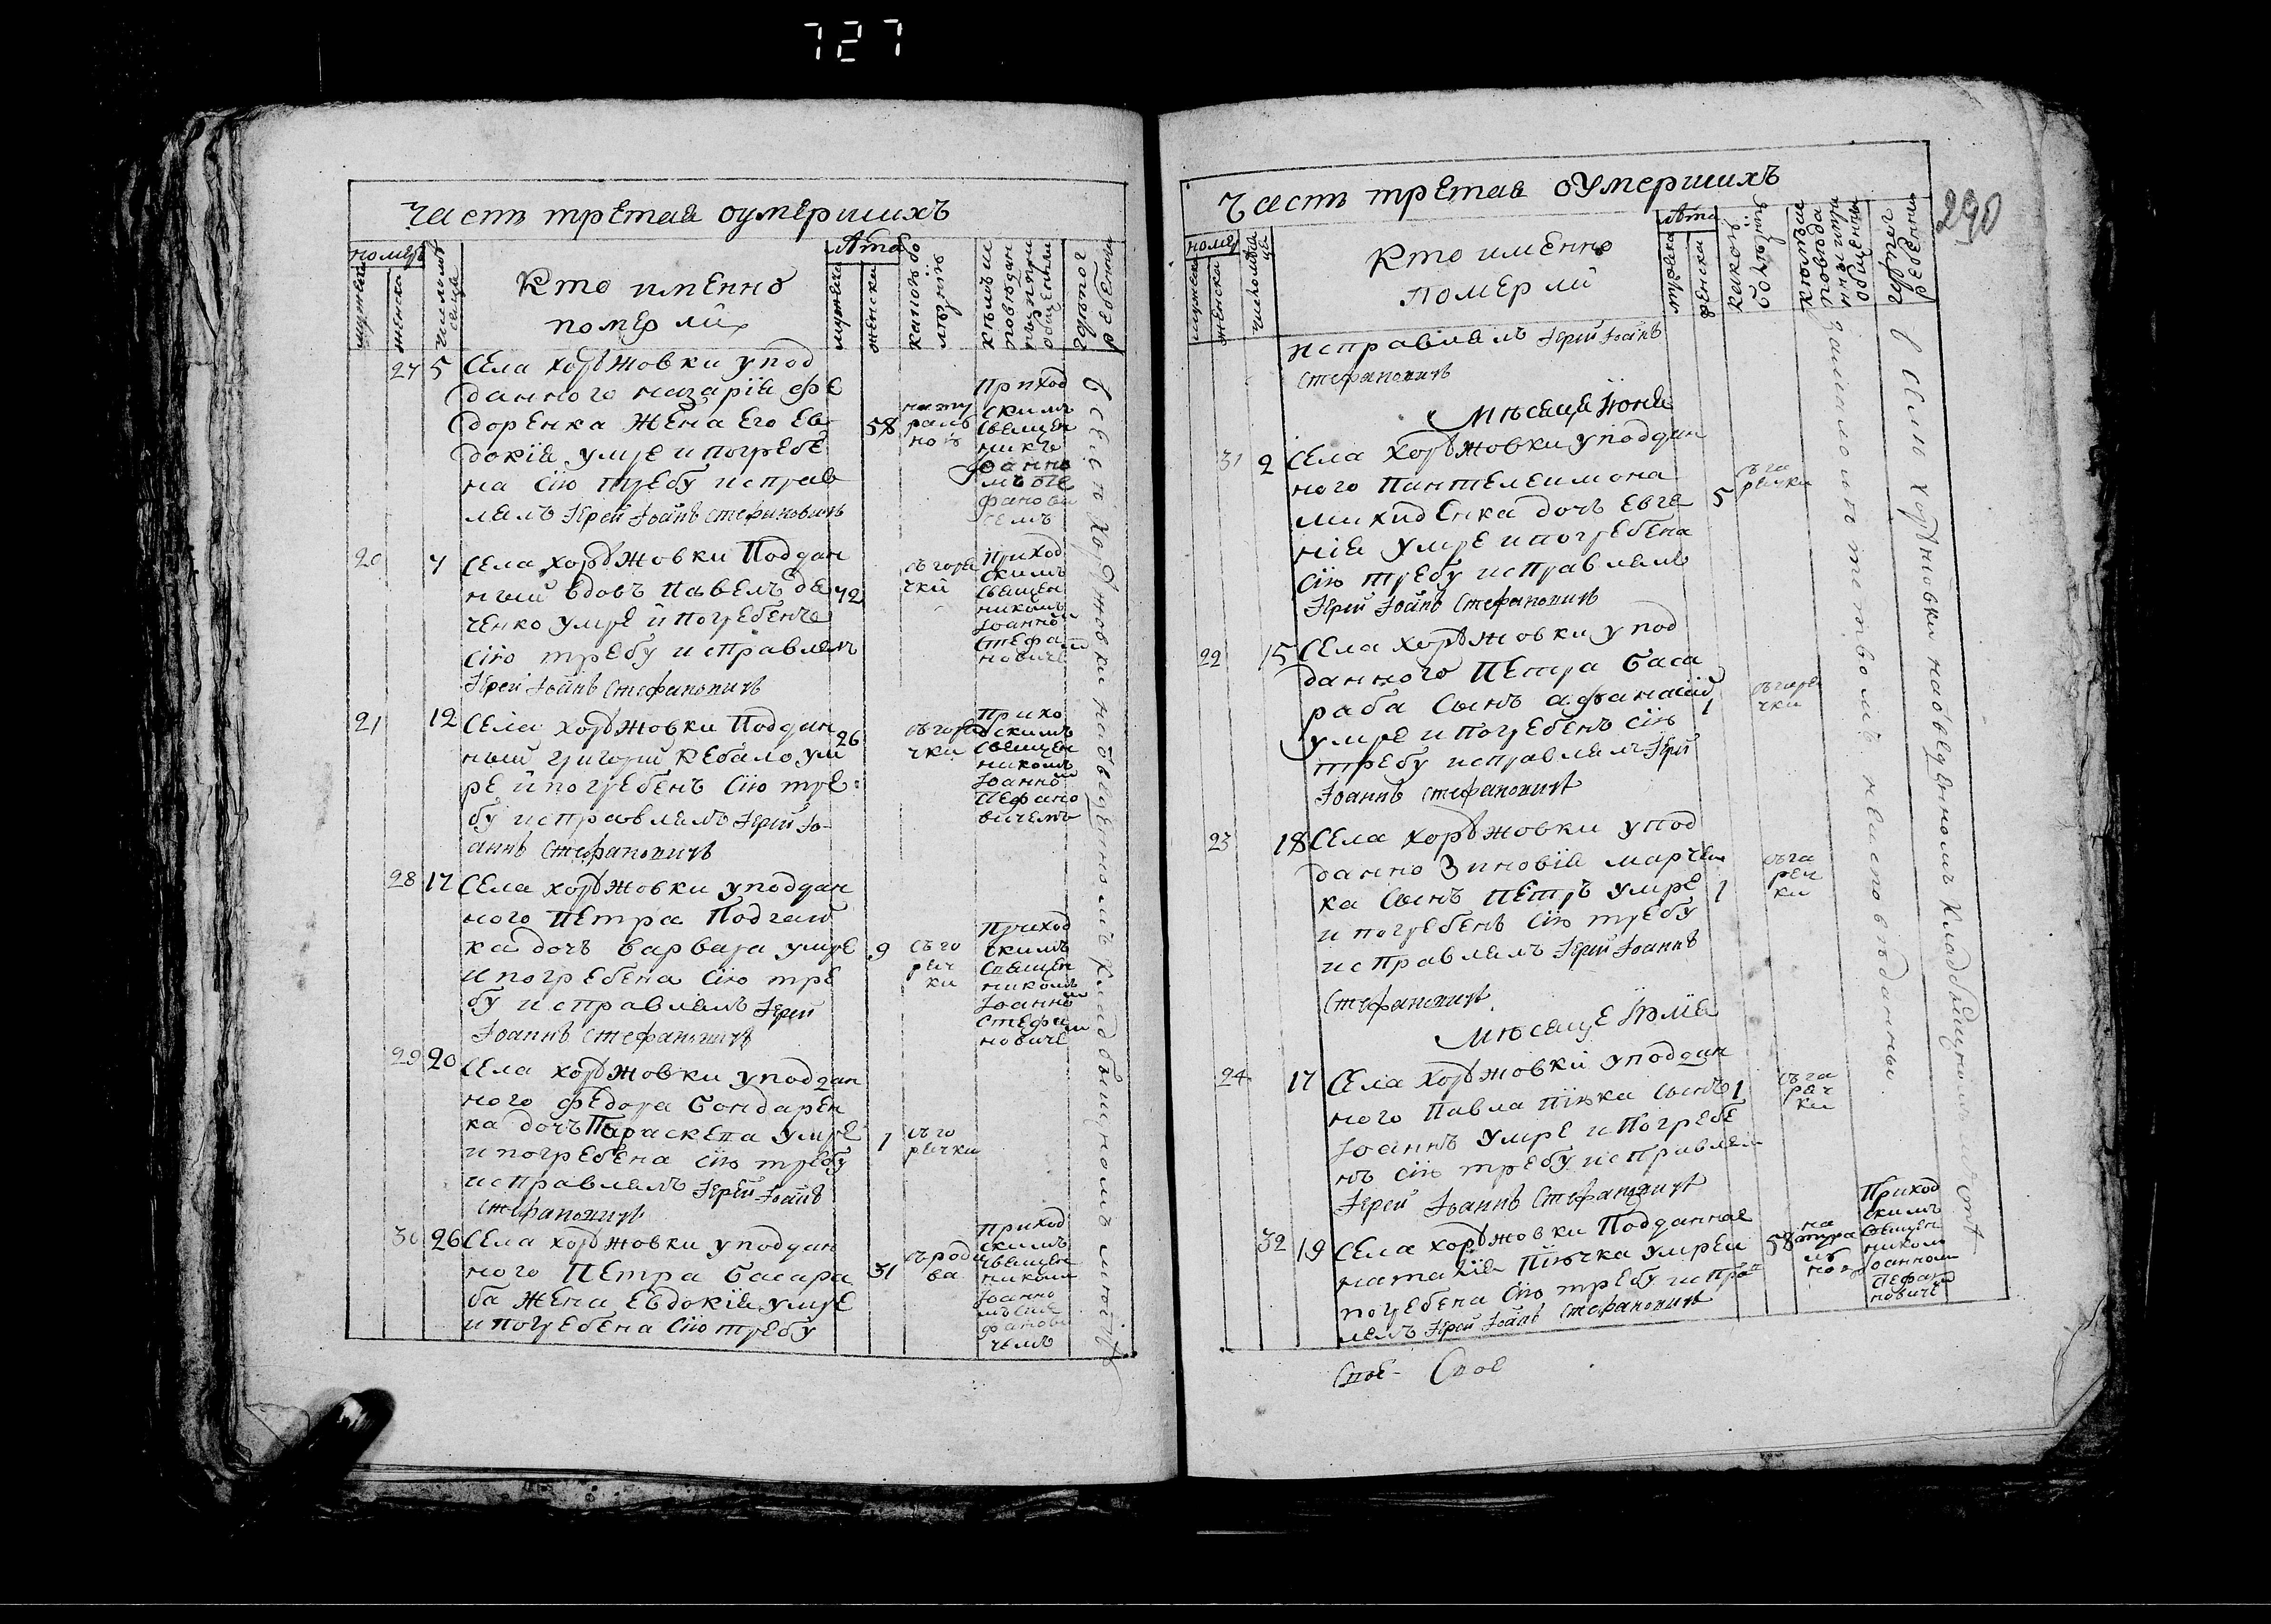 727
Часть третая оумершихъ
номеръ
мужеска
женска
число мѣсеца
Кто именно
померли
Лѣта
мужеска
женска
какою бо
лезнію
кемъ ис
поведан
прі
общенны
Где по
гребенны
27 5 Села Хоружовки у под
данного Назарія Фе
доренка жена его Ев
докія умре и погребе
на сію требу исправ
лялъ Іерей Іоаннъ Стефановичъ
58
нату
ралъ
ною
Приход
скимъ
священ
никъ
Іоанно
мъ Сте
фанови
чемъ
20 7 Села Хоружовки Поддан
ный вдовъ Павелъ Дя
ченко умре и погребенъ
сію требу исправлялъ
Іерей Іоаннъ Стефановичъ
72
съ горя
чки
Приход
скимъ
священ
никомъ
Іоанном
Стефа
новиче
21 12 Села Хоружовки Поддан
ный Григорий Кебало ум
ре и погребенъ сію тре
бу исправлялъ Іерей Іо-
аннъ Стефановичъ
26
съ горя
чки
Прихо
дскимъ
священ
никомъ
Іоанном
Стефано
вичемъ
28 17 Села Хоружовки у поддан
ного Петра Подгай
ка дочъ Варвара умре
и погребена сію тре
бу исправлялъ Іерей
Іоаннъ Стефановичъ
9
съ го
ряч
ки
Приход
скимъ
священ
никомъ
Іоанном
Стефа
новиче
29 20 Села Хоружовки у поддан
ного Федора Бондарен
ка дочъ Параскева умре
и погребена сію требу
исправлялъ Іерей Іоаннъ
Стефановичъ
1
съ го
рячки
30 26 Села Хоружовки у поддан
ного Петра Басара
ба жена Евдокія умре
и погребена сію требу
31
съ роди
ва
Приход
скимъ
священ
никомъ
Іоанно
мъ Сте
фанови
чемъ
в селе Хоружовки на отведенномъ кладбищномъ месте
290
Часть третая оумершихъ
номеръ
мужеска
женска
число мѣся
ца
Кто именно
померли
Лѣта
мужска
женска
какою
болезнію
общенны
где по
гребенны
исправлялъ Іерей Іоаннъ
Стефановичъ
Мѣсяця Іюня
31 2 Села Хоружовки у поддан
ного Пантелеимона
дочъ Евге
нія умре и погребена
сію требу исправлялъ
Іерей Іоаннъ Стефановичъ
5
съ га
рячки
22 15 Села Хоружовки у под
данного Петра Баса
раба сынъ Афанасій
умре и погребенъ сію
требу исправлялъ Іерей
Іоаннъ Стефановичъ
1
съ гаря
чки
23 18 Села Хоружовки у под
данно Зиновія Марчен
ка сынъ Петръ умре
и погребенъ сію требу
исправлялъ Іерей Іоаннъ
Стефановичъ
1
съ га
ряч
ки
Мѣсяце Іюлія
24 17 Села Хоружовки у поддан
ного Павла Пінка сынъ
Іоаннъ умре и погребе
нъ сію требу исправлял
Іерей Іоаннъ Стефановичъ
1
съ га
ряч
ки
32 19 Села ХоружовкиПодданная
Наталія Пінчка умре и
погребена сію требу испра
влялъ Іерей Іоаннъ Стефановичъ
58
на
тура
лъ
ною
Приход
скимъ
священ
никомъ
Іоанном
Стефан
новиче
за малолетствомъ не исповеданны
в селе Хоружовки на отведенномъ кладбищномъ месте